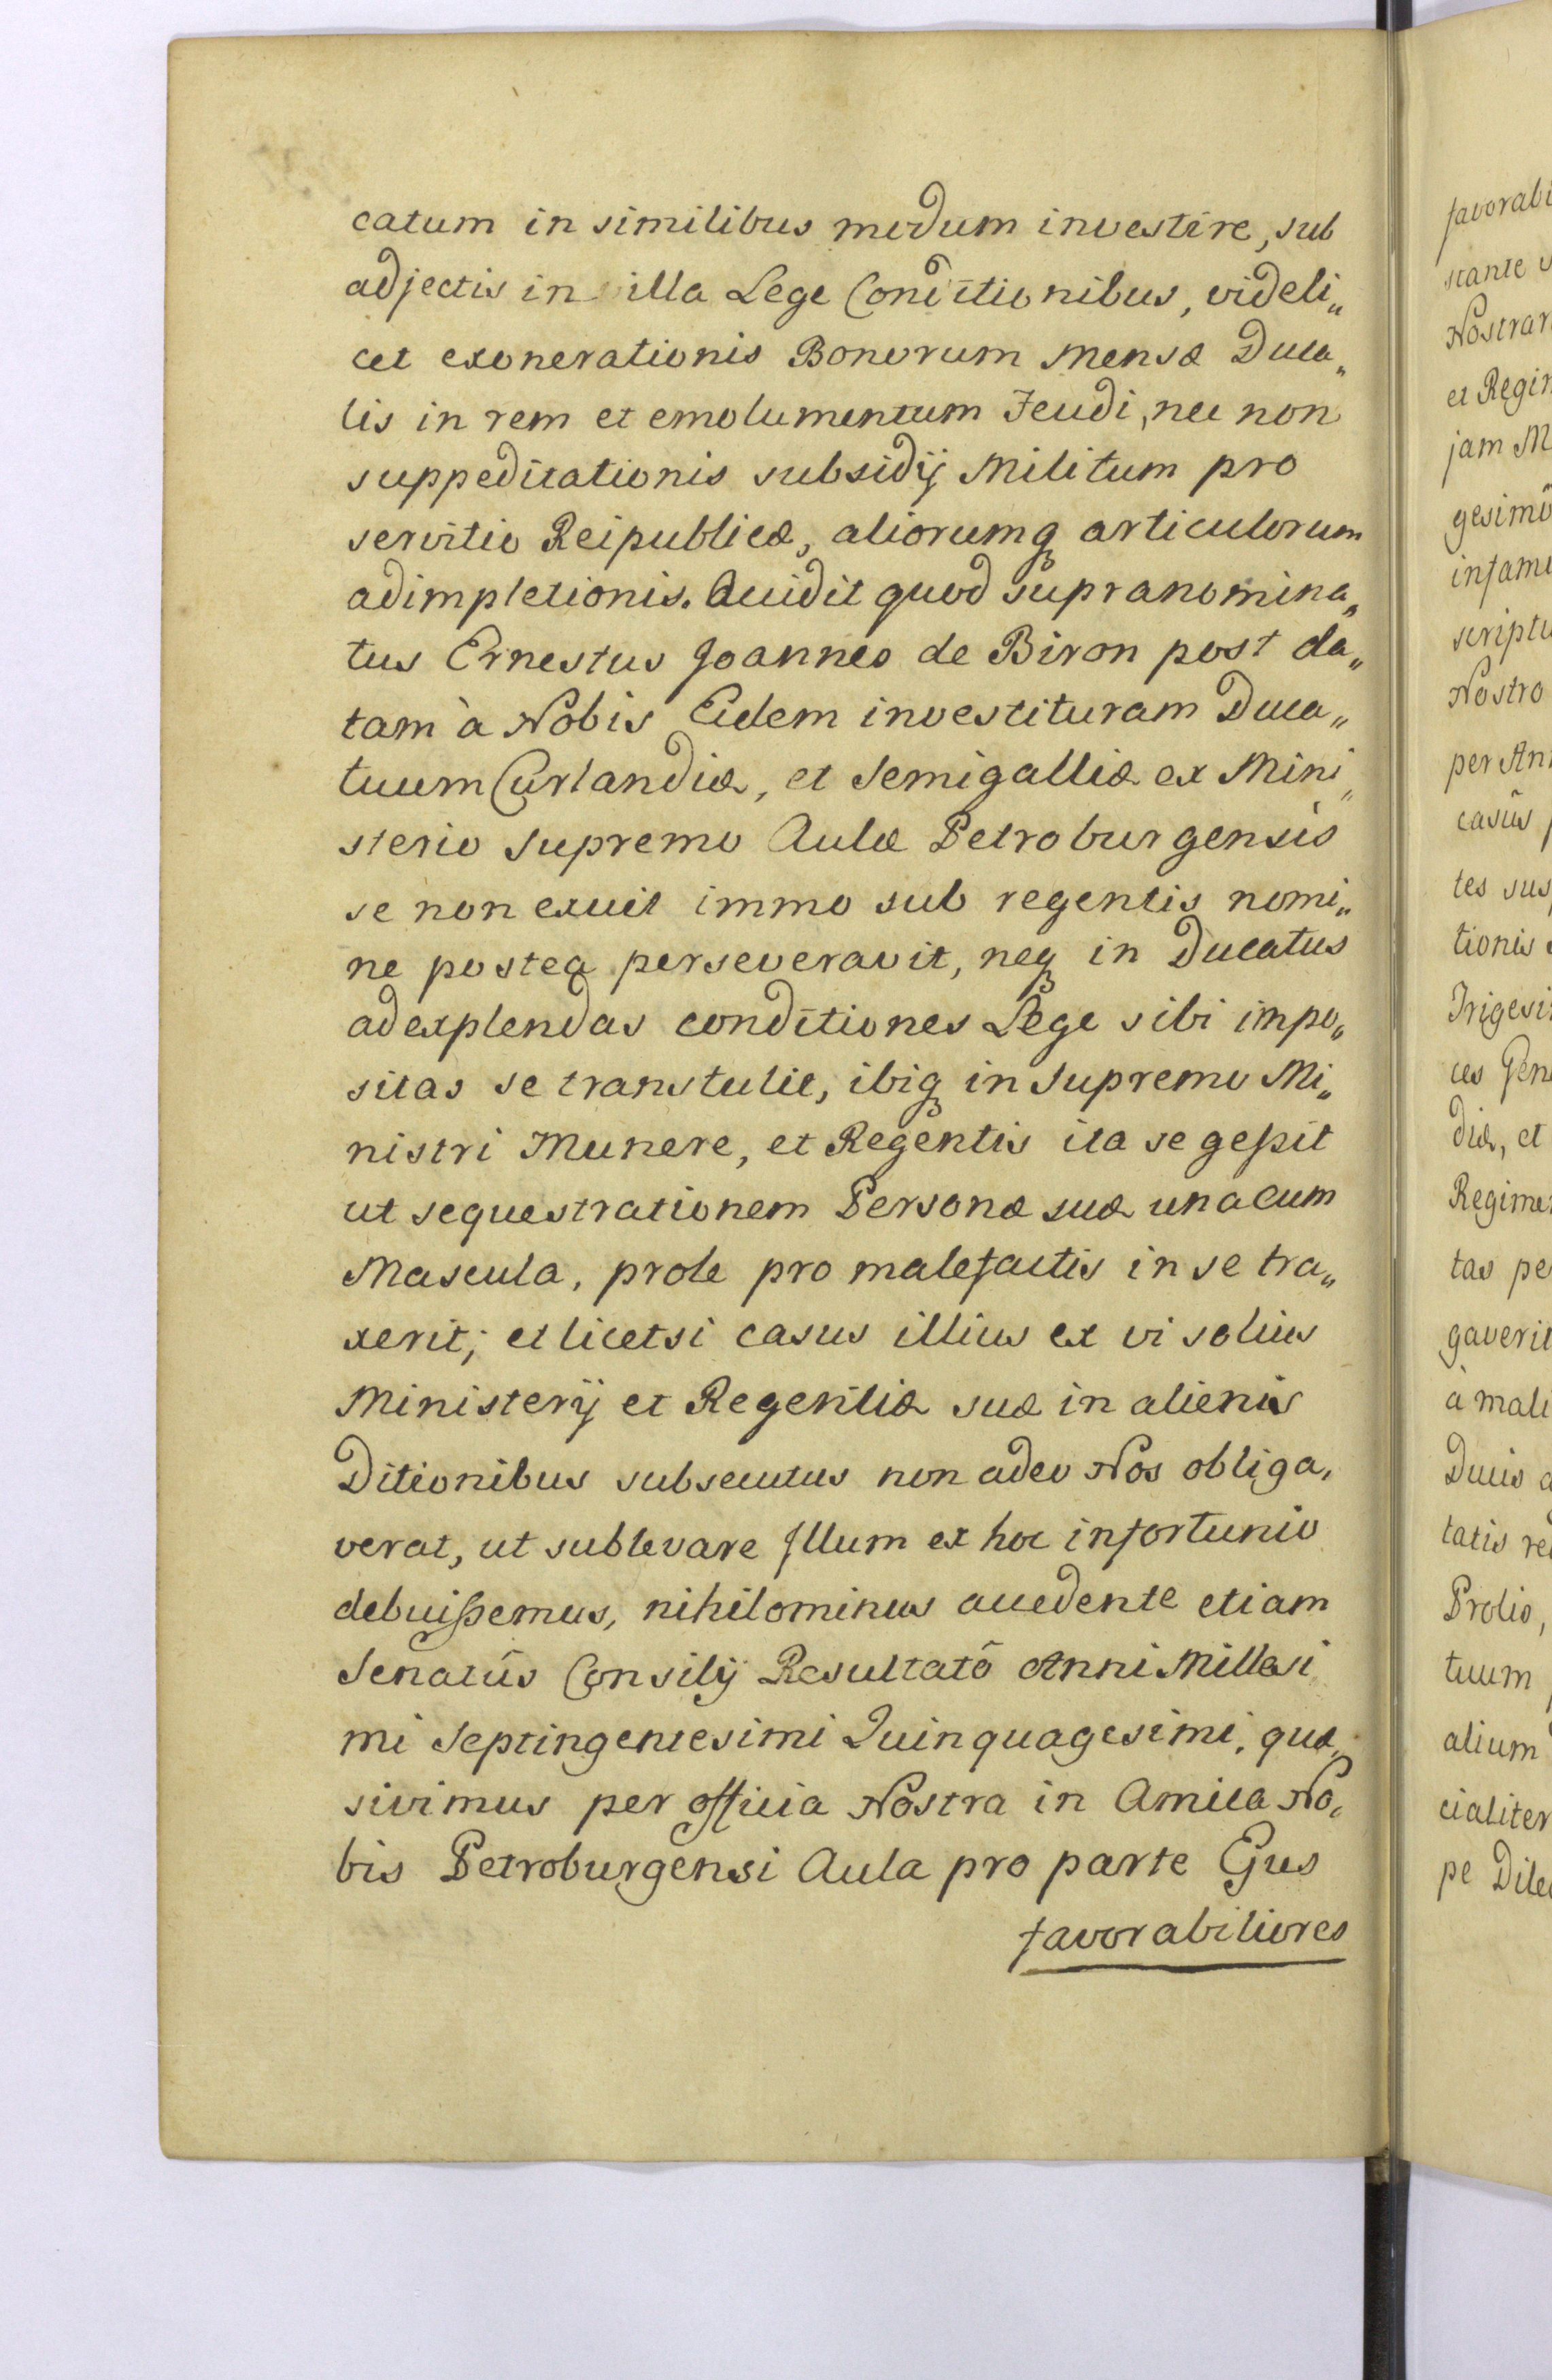 catum in similibus modum investire, sub
adjectis in illa Lege Conditionibus, videli„
cet exonerationis Bonorum Mensæ Duca„
lis in rem et emolumentum Feudi, nec non
suppeditationis subsidij Militum pro
servitio Reipublicæ, aliorumq articulorum
adimpletionis. Accidit quod supranomina„
tus Ernestus Joannes de Biron post da„
tam à Nobis Eidem investituram Duca„
tuum Curlandiæ, et Semigalliæ ex Mini„
sterio Supremo Aulæ Petroburgensis
se non exuit immo sub regentis nomi„
ne postea perseveravit, neq in Ducatus
ad explendas conditiones Lege sibi impo„
sitas se transtulit, ibiq in Supremo Mi„
nistri Munere, et Regentis ita se gessit
ut sequestrationem Personæ suæ una cum
Mascula, prole pro malefactis in se tra„
xerit; et licet si casus illius ex vi solius
Ministerij et Regentiæ suæ in alienis
Ditionibus subsecutus non adeo Nos obliga„
verat, ut sublevare Illum ex hoc infortunio
debuissemus, nihilominus accedente etiam
Senatûs Consilij Resultatô Anni Millesi
mi Septingentesimi Quinquagesimi, quæ„
sivimus per officia Nostra in Amica No„
bis Petroburgensi Aula pro parte Ejus
favorabiliores
favorabi
stante
Nostrar
et Regin
jam M
gesimô
infami
scriptu
Nostro
per An
casûs
tes sus
tionis
Trigesi
ces Gen
diæ, et
Regime
tas pe
gaverit
à mali
Ducis a
tatis re
Prolis,
tuum
alium
cialiter
pe Dile